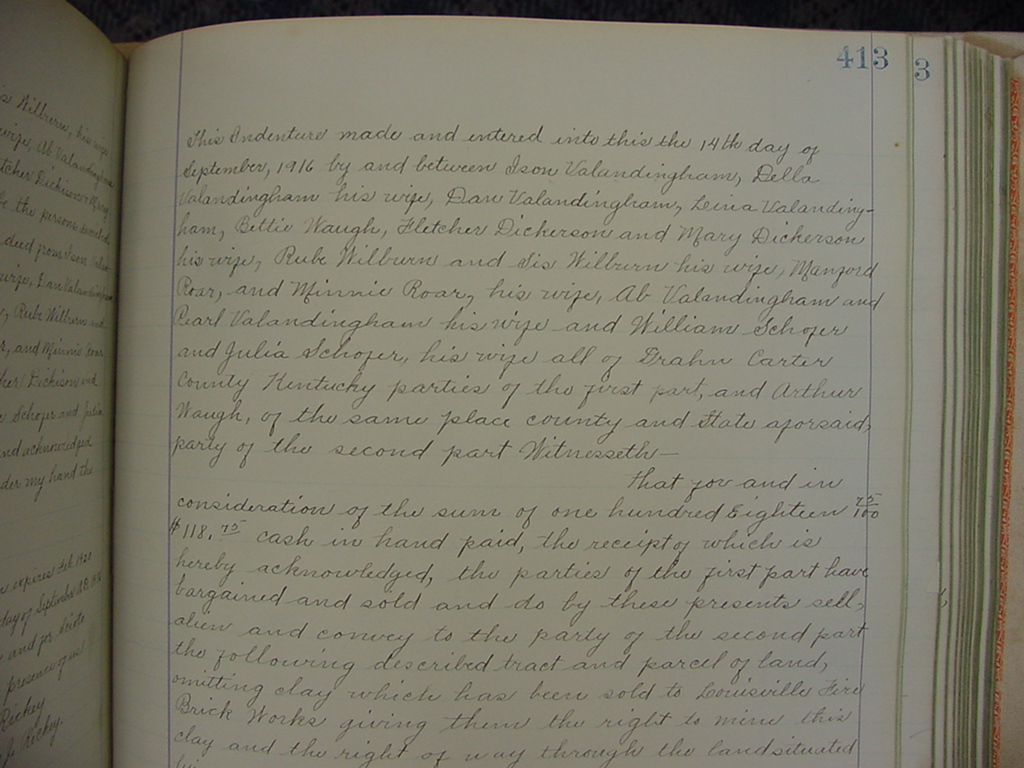 is Wilburn, his wife
wife, Ab Valandingham
tcher Dickerson Mary
be the persons
deed from Ison
wife, Dan Valandingham
, Rube Wilburn and
r, and Minnie Roar
her Dickison and
Schofer and Julia
and acknowledged
der my hand the
expires Feb. 1920
day of September
and for
presence of us
413
3
This Indenture made and entered into this the 14th day of
September, 1916 by and between Ison Valandingham, Della
Valandingham his wife, Dan Valandingham, Lena Valanding-
ham, Bettie Waugh, Fletcher Dickerson and Mary Dickerson
his wife, Rube Wilburn and Sis Wilburn his wife, Manford
Roar, and Minnie Roar, his wife, Ab Valandingham and
Pearl Valandingham his wife and William Schofer
and Julia Schofer, his wife all of Drahn Carter
County Kentucky parties of the first part, and Arthur
Waugh, of the same place county and State aforsaid,
party of the second part Witnesseth—
That for and in
consideration of the sum of one hundred Eighteen 75/100
$118.75 cash in hand paid, the receipt of which is
hereby acknowledged, the parties of the first part have
bargained and sold and do by these presents sell,
alien and convey to the party of the second part
the following described tract and parcel of land,
omitting clay which has been sold to Louisville Fire
Brick Works giving them the right to mine this
clay and the right of way through the land situated